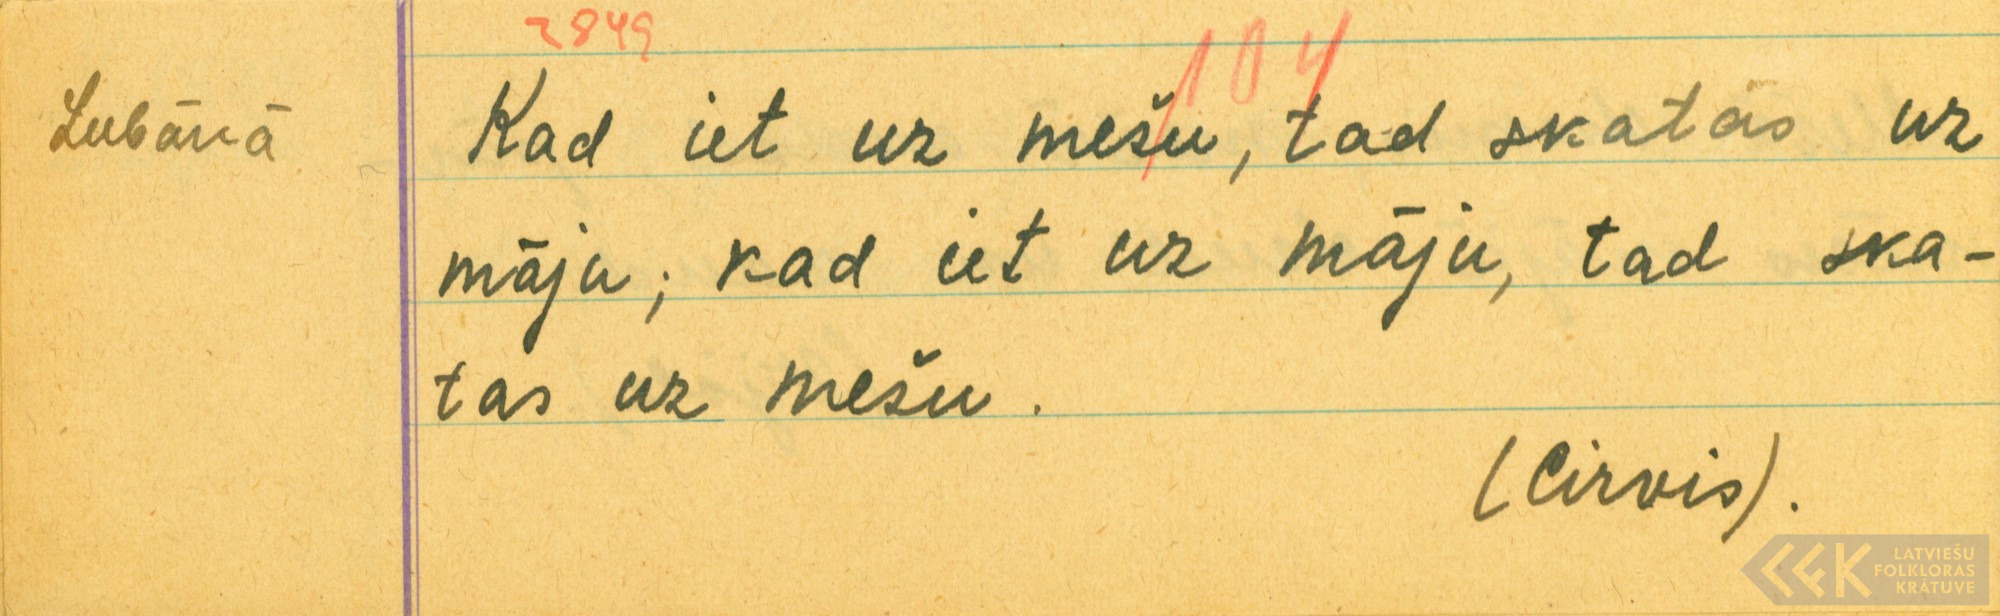 2849
104
Lubānā
Kad iet uz mešu, tad skatās uz
māju; kad iet uz māju, tad ska-
tas uz mešu.
(Cirvis).
LATVIEŠU
FOLKLORAS
KRĀTUVE